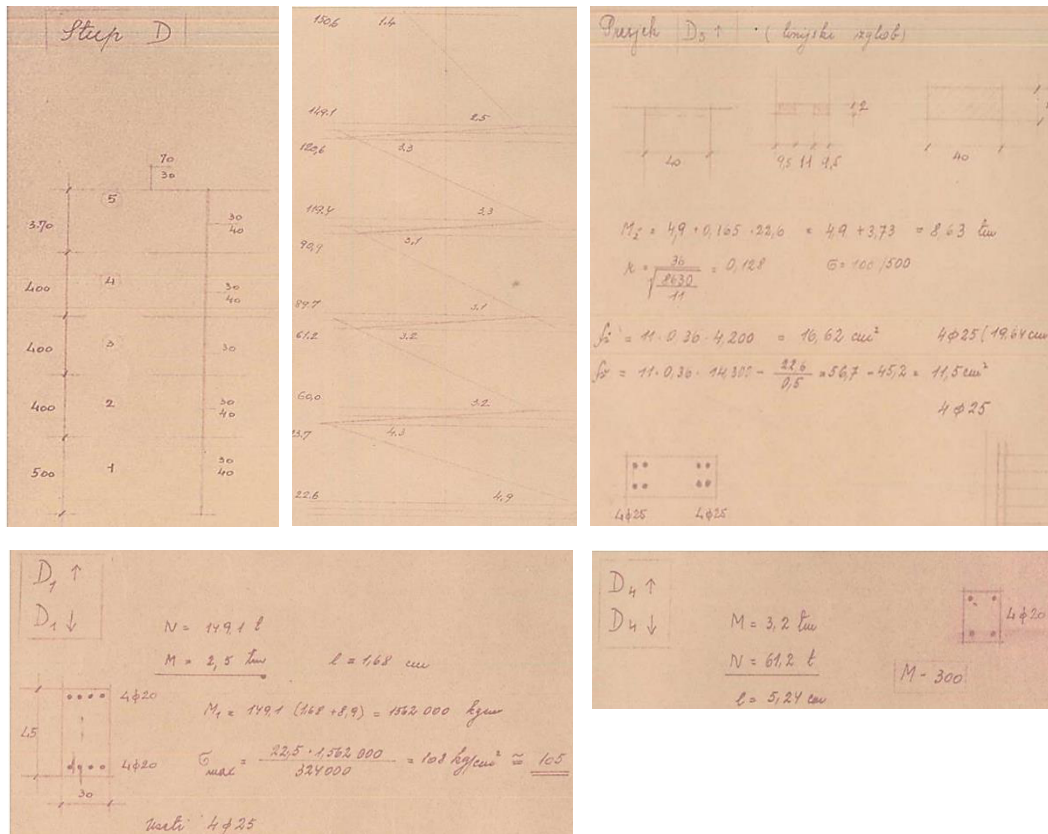 Stup D
70
30
5
3.70
30
40
4
400
30
40
3
400
30
2
400
30
40
1
500
30
40
150,6 1.4
149.1 2,5
120,6 3.3
119.4 3,3
90,9 3,1
89.7 3,1
61.2 3.2
60,0 3.2
4.3
22.6 4,9
Presjek D5 ↑ (linijski zglob)
40
9,5 11 9,5
40
= 4,9 + 0,165 · 22,6 = 4,9 + 3,73 = 8,63 tm
= 36 / √(8630 / 11) = 0,128 σ = 100/500
= 11 · 0,36 · 4,200 = 16,62 cm² 4ϕ25 (19,64 cm
= 11 · 0,36 · 14,300 - 22,6 / 0,5 = 56,7 - 45,2 = 11,5 cm²
4ϕ25
4ϕ25 4ϕ25
D1 ↑
D1 ↓
N = 149,1 t
M = 2,5 tm l = 1,68 cm
4ϕ20
45
M1 = 149,1 (1,68 + 8,9) = 1562 000 kgcm
4ϕ20
σmax = 22,5 · 1.562 000 / 324000 = 108 kg/cm² ≅ 105
30
uzeti 4ϕ25
D4 ↑
D4 ↓
M = 3,2 tm
4ϕ20
N = 61,2 t
M - 300
l = 5,24 cm